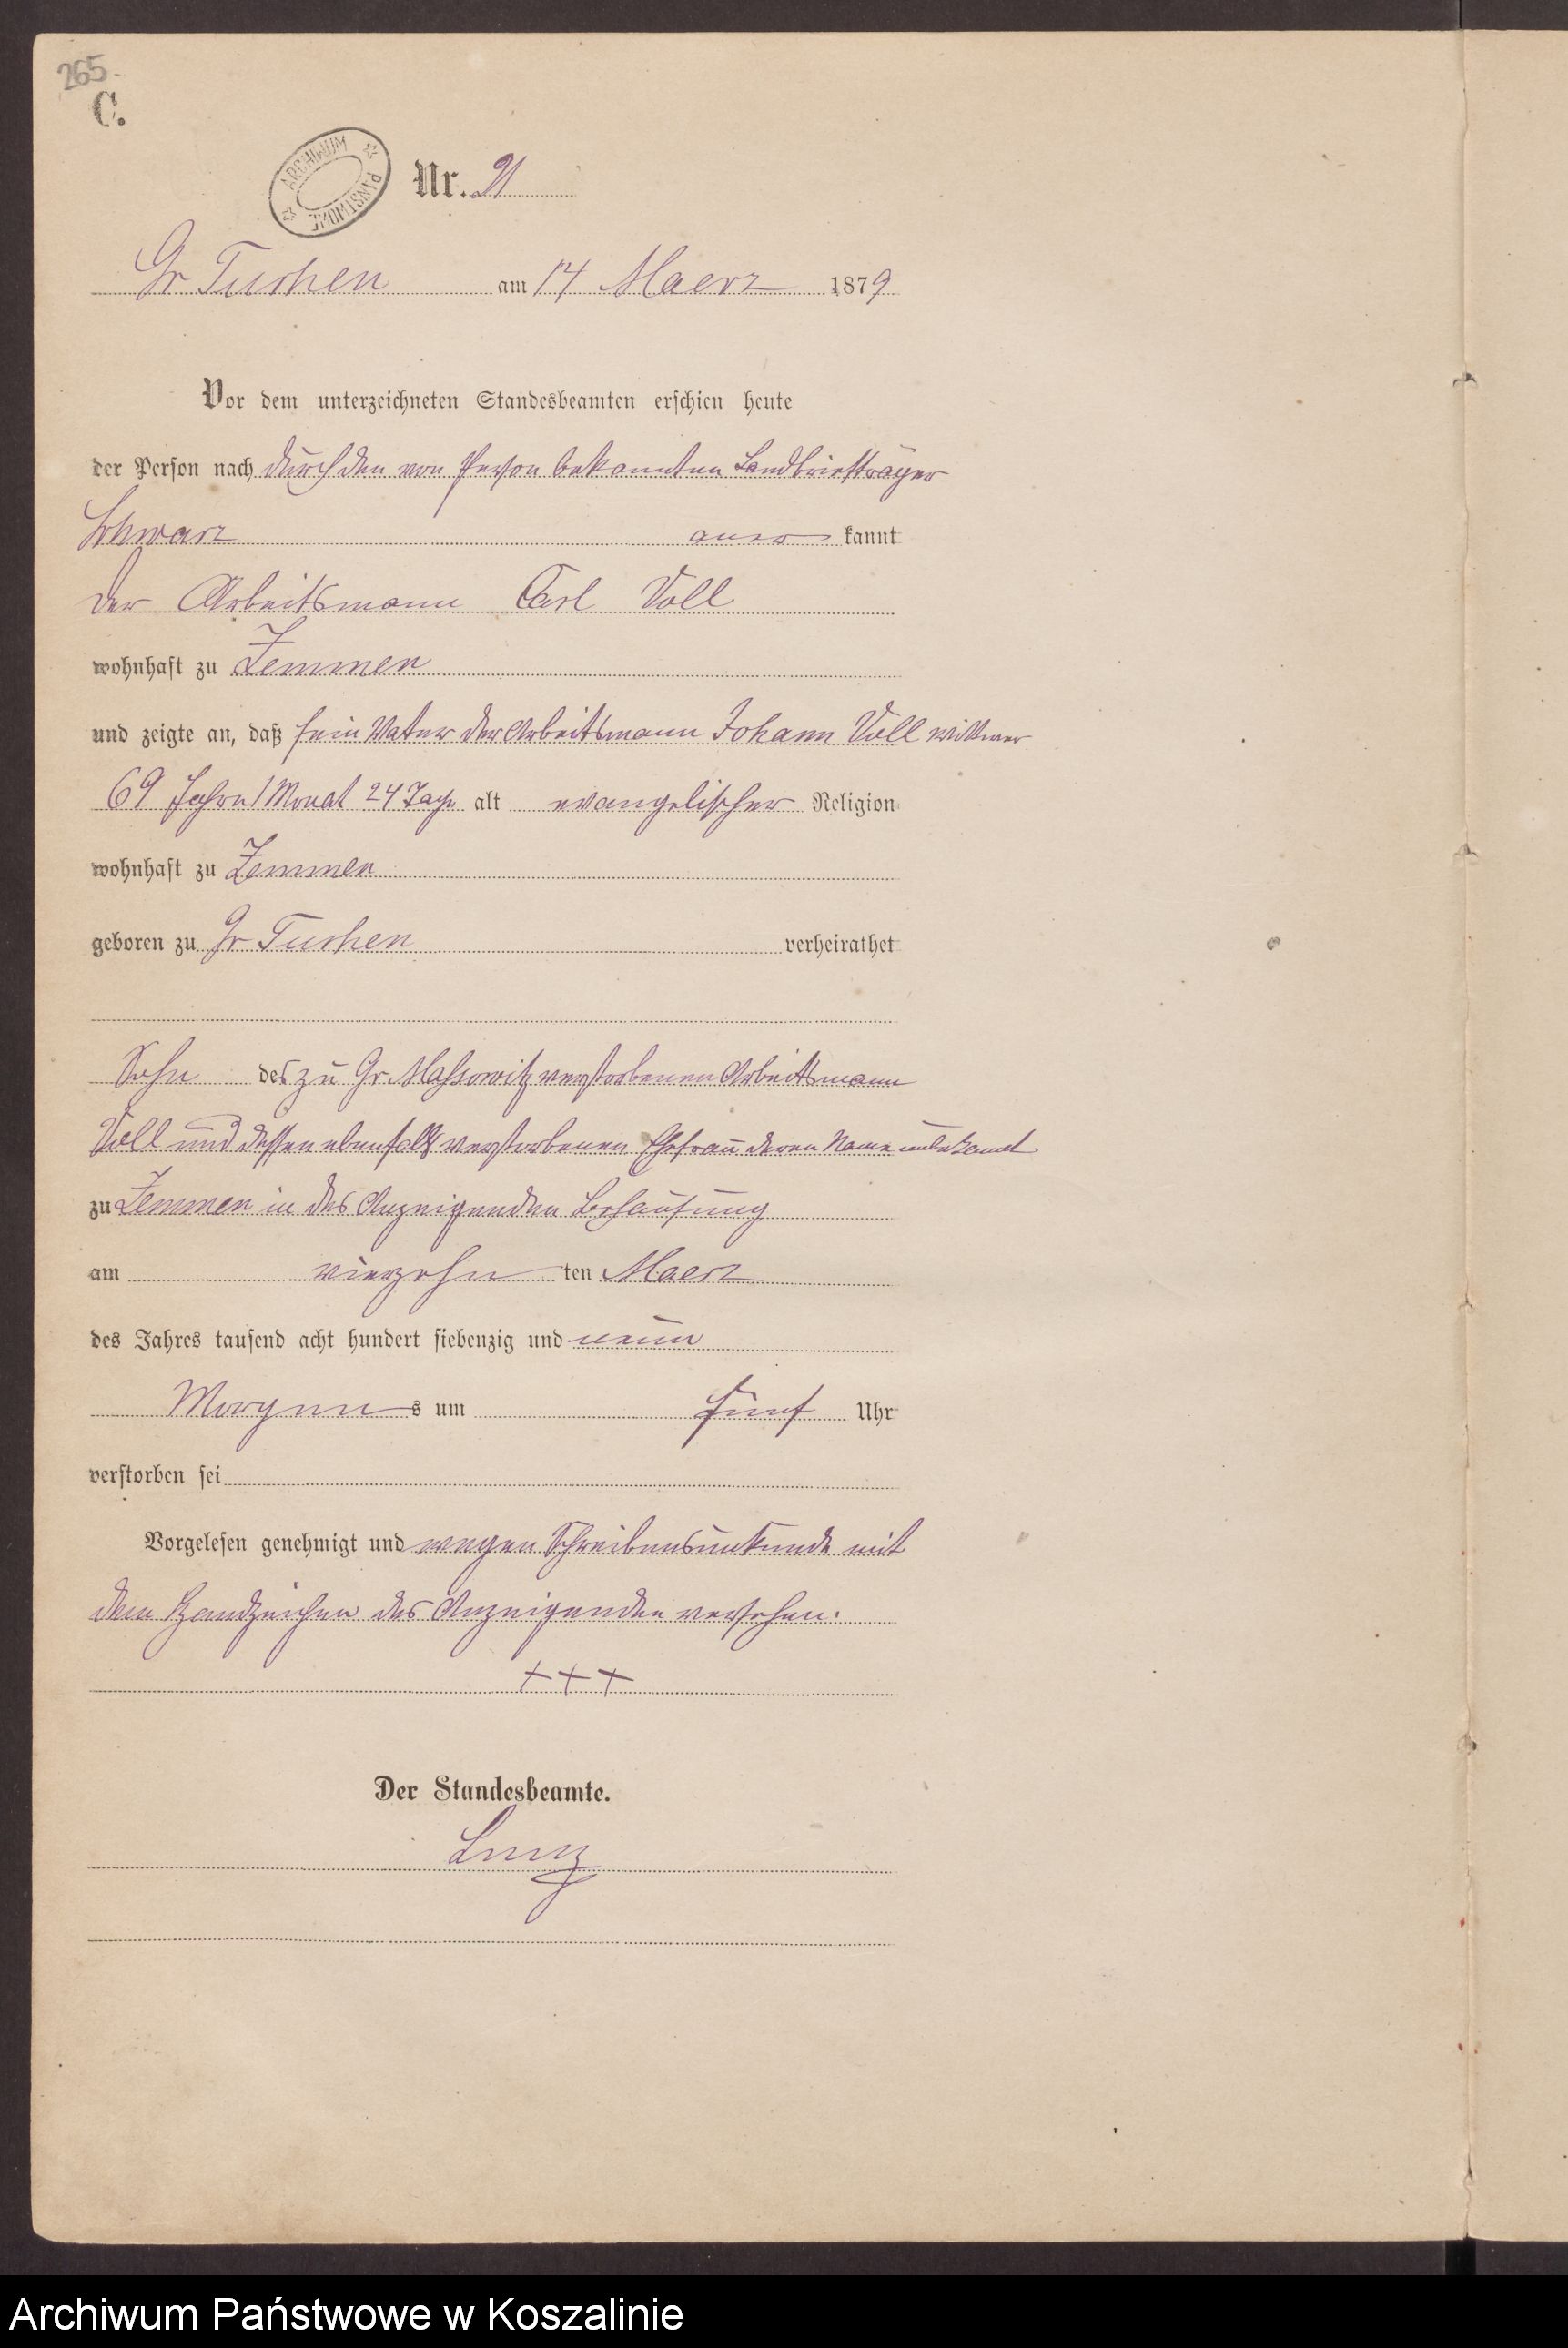 265.
C.
ARCHIWUM PAŃSTWOWE
Nr. 21
Gr Tuchen am 14 Maerz 1879
Vor dem unterzeichneten Standesbeamten erschien heute
der Person nach durch den von Person bekannten Landbriefträger
Schwarz aner kannt
der Arbeitsmann Carl Voll
wohnhaft zu Zemmen
und zeigte an, daß sein Vater der Arbeitsmann Johann Voll Wittwer
69 Jahre 1 Monat 24 Tage alt evangelischer Religion
wohnhaft zu Zemmen
geboren zu Gr Tuchen verheirathet
Sohn des zu Gr. Massowitz verstorbenen Arbeitsmann
Voll und dessen ebenfalls verstorbenen Ehefrau deren Name unbekannt
zu Zemmen in des Anzeigenden Behausung
am vierzehn ten Maerz
des Jahres tausend acht hundert siebenzig und neun
Morgens um fünf Uhr
verstorben sei
Vorgelesen genehmigt und wegen Schreibensunkunde mit
dem Handzeichen des Anzeigenden versehen.
+++
Der Standesbeamte.
Archiwum Państwowe w Koszalinie